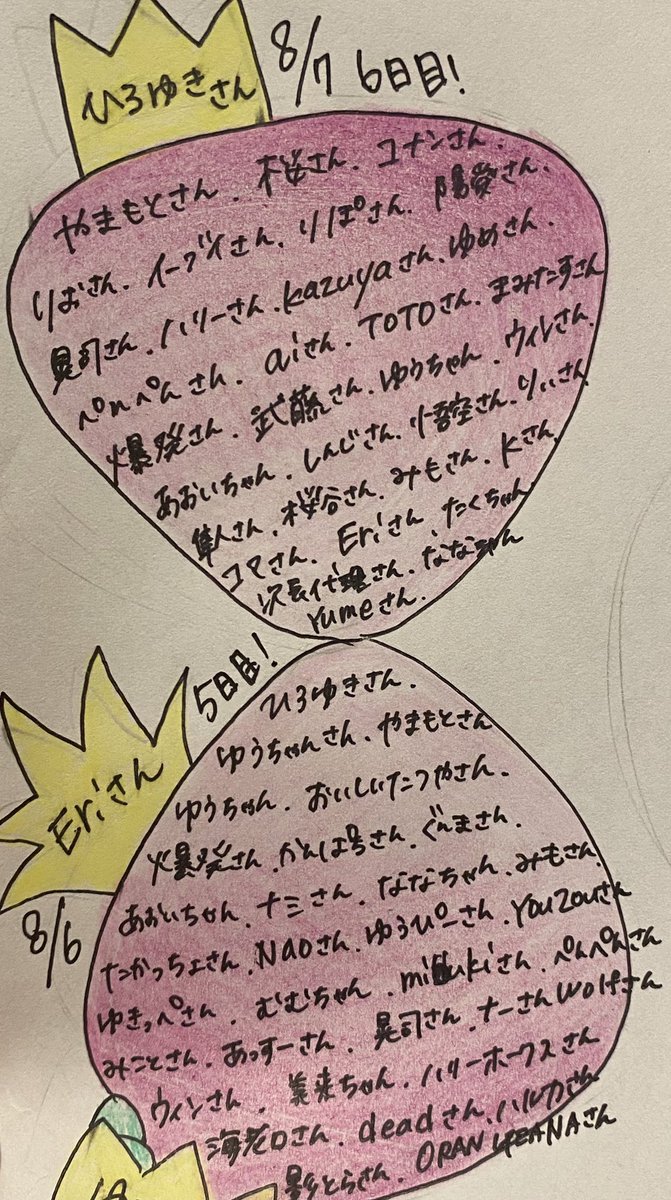 ひろゆきさん
8/7 6日目!
やまもとさん、桜さん、コナンさん、
りおさん、イーブイさん、りぽさん、陽登さん、
晃司さん、ハリーさん、kazuyaさん、ゆめさん、
ぺんぺんさん、aiさん、TOTOさん、まみたすさん
爆発さん、武藤さん、ゆうちゃん、ウィルさん、
あおいちゃん、しんじさん、悟空さん、りぃさん
隼人さん、桜谷さん、みもさん、Kさん
コマさん、Eriさん、たくちゃん
次長代理さん、ななちゃん
Yumeさん、
5日目!
Eriさん
8/6
ひろゆきさん、
ゆうちゃんさん、やまもとさん
ゆうちゃん、おいしいたつやさん、
爆発さん、かんぱ号さん、ぐんまさん、
あおいちゃん、ナミさん、ななちゃん、みもさん
たかっちょさん、Naoさん、ゆうぴーさん、Youzouさん
ゆきっぺさん、むむちゃん、mizukiさん、ぺんぺんさん
みことさん、あっすーさん、晃司さん、ナーさんwolfさん
ウィンさん、美来ちゃん、ハリーホークスさん
海老口さん、deadさん、ハルカさん
影とらさん、ORANさん